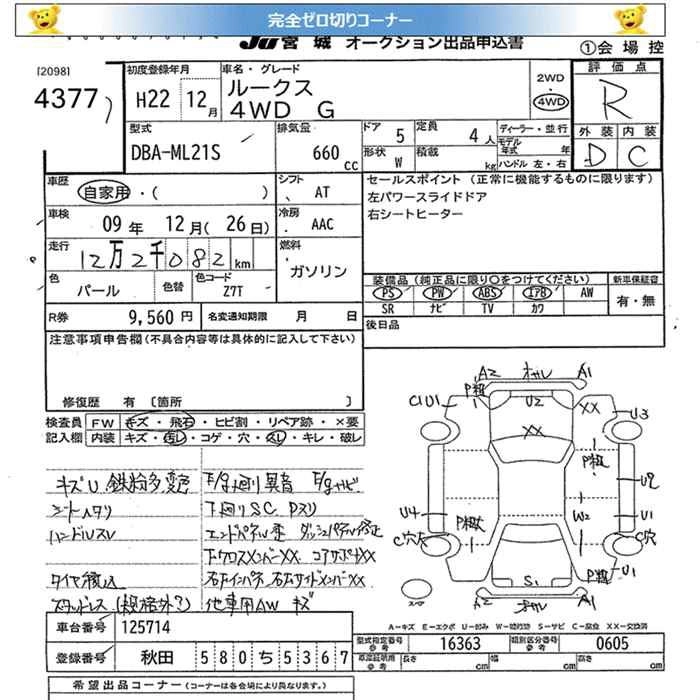 完全ゼロ切りコーナー
JU宮城 オークション出品申込書
①会場控
[2098]
4377
初度登録年月 H22 12月
車名・グレード ルークス 4WD G
2WD 4WD
評価点 R
外装 内装
D C
型式 DBA-ML21S
排気量 660 cc
ドア 5 定員 4人
形状 W 積載 kg
ディーラー・並行
モデル年式 年
ハンドル 左・右
車歴 自家用・( )
シフト AT
セールスポイント (正常に機能するものに限ります)
左パワースライドドア
右シートヒーター
車検 09年 12月(26日)
冷房 AAC
走行 12万2千082km
燃料 ガソリン
色 パール 色替 色コード Z7T
装備品 (純正品に限り○をつけてください) 新車保証書
PS PW ABS エアB AW 有・無
SR ナビ TV カワ
R券 9,560円 名変通知期限 月 日
後日品
注意事項申告欄(不具合内容等は具体的に記入して下さい)
修復歴 有 [箇所 ]
検査員 FW キズ・飛石・ヒビ割・リペア跡・×要
記入欄 内装 キズ・汚レ・コゲ・穴・スレ・キレ・破レ
キズU 鉄粉多 変色 F/g廻り異音 F/gサビ
シートヘタリ 下廻りSC Pスリ
ハンドルスレ エンドパネル歪 ダッシュパネル修正
下クロスメンバーXX コアサポートXX
タイヤ積込 右Fインパネ 右左サイドメンバーXX
スタッドレス(規格外?) 他車用AW キズ
A2 オサレ A1
P粗
C1U1 U2 XX U3
XX
P粗
U2
U4 W2 U1
P粗大
C穴大 C穴
P粗
S1 U1
A2 オサレ A1
スペア
A-キズ E-エクボ U-凹み W-補修跡 S-サビ C-腐食 XX-交換済
車台番号 125714
型式指定番号 参考 16363 類別区分番号 参考 0605
登録番号 秋田 580 ち 5367
車庫証明用 参考 長さ cm 幅 cm 高さ cm
希望出品コーナー (コーナーは各会場により異なります。)